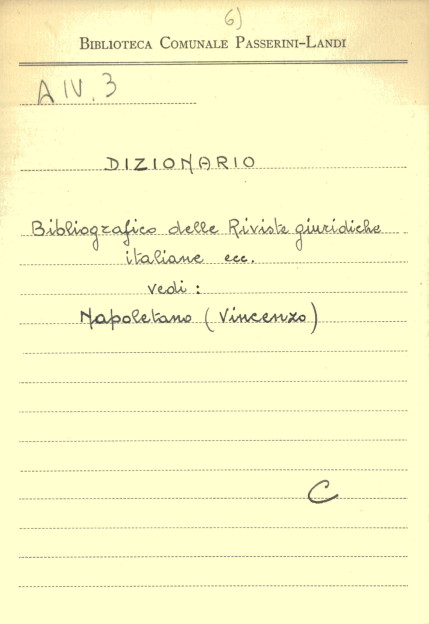 6)
BIBLIOTECA COMUNALE PASSERINI-LANDI
A IV. 3
DIZIONARIO
Bibliografico delle Riviste giuridiche
italiane ecc.
vedi :
Napoletano (Vincenzo)
C